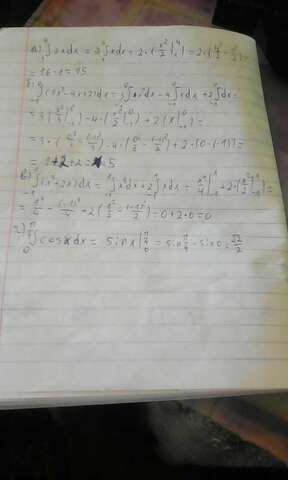 а) ∫₁⁴ 2xdx = 2 ∫₁⁴ xdx = 2·(x²/2 |₁⁴) = 2·(4²/2 - 1²/2) =
= 16-1 = 15
б) ∫₋₁⁰ (3x²-4x+2)dx = 3∫₋₁⁰ x²dx - 4∫₋₁⁰ xdx + 2∫₋₁⁰ dx =
= 3(x³/3 |₋₁⁰) - 4·(x²/2 |₋₁⁰) + 2(x|₋₁⁰) =
= 3·( - (-1)³/3) - 4·(0²/2 - (-1)²/2) + 2·(0-(-1)) =
= +2+2 = 5
в) ∫₋₁¹ (x³+2x)dx = ∫₋₁¹ x³dx + 2∫₋₁¹ xdx = x⁴/4 |₋₁¹ + 2·(x²/2 |₋₁¹) =
= 1⁴/4 - (-1)⁴/4 + 2(1²/2 - (-1)²/2) = 0+2·0 = 0
г) ∫₀^(π/4) cosxdx = sinx |₀^(π/4) = sin π/4 - sin0 = √2/2